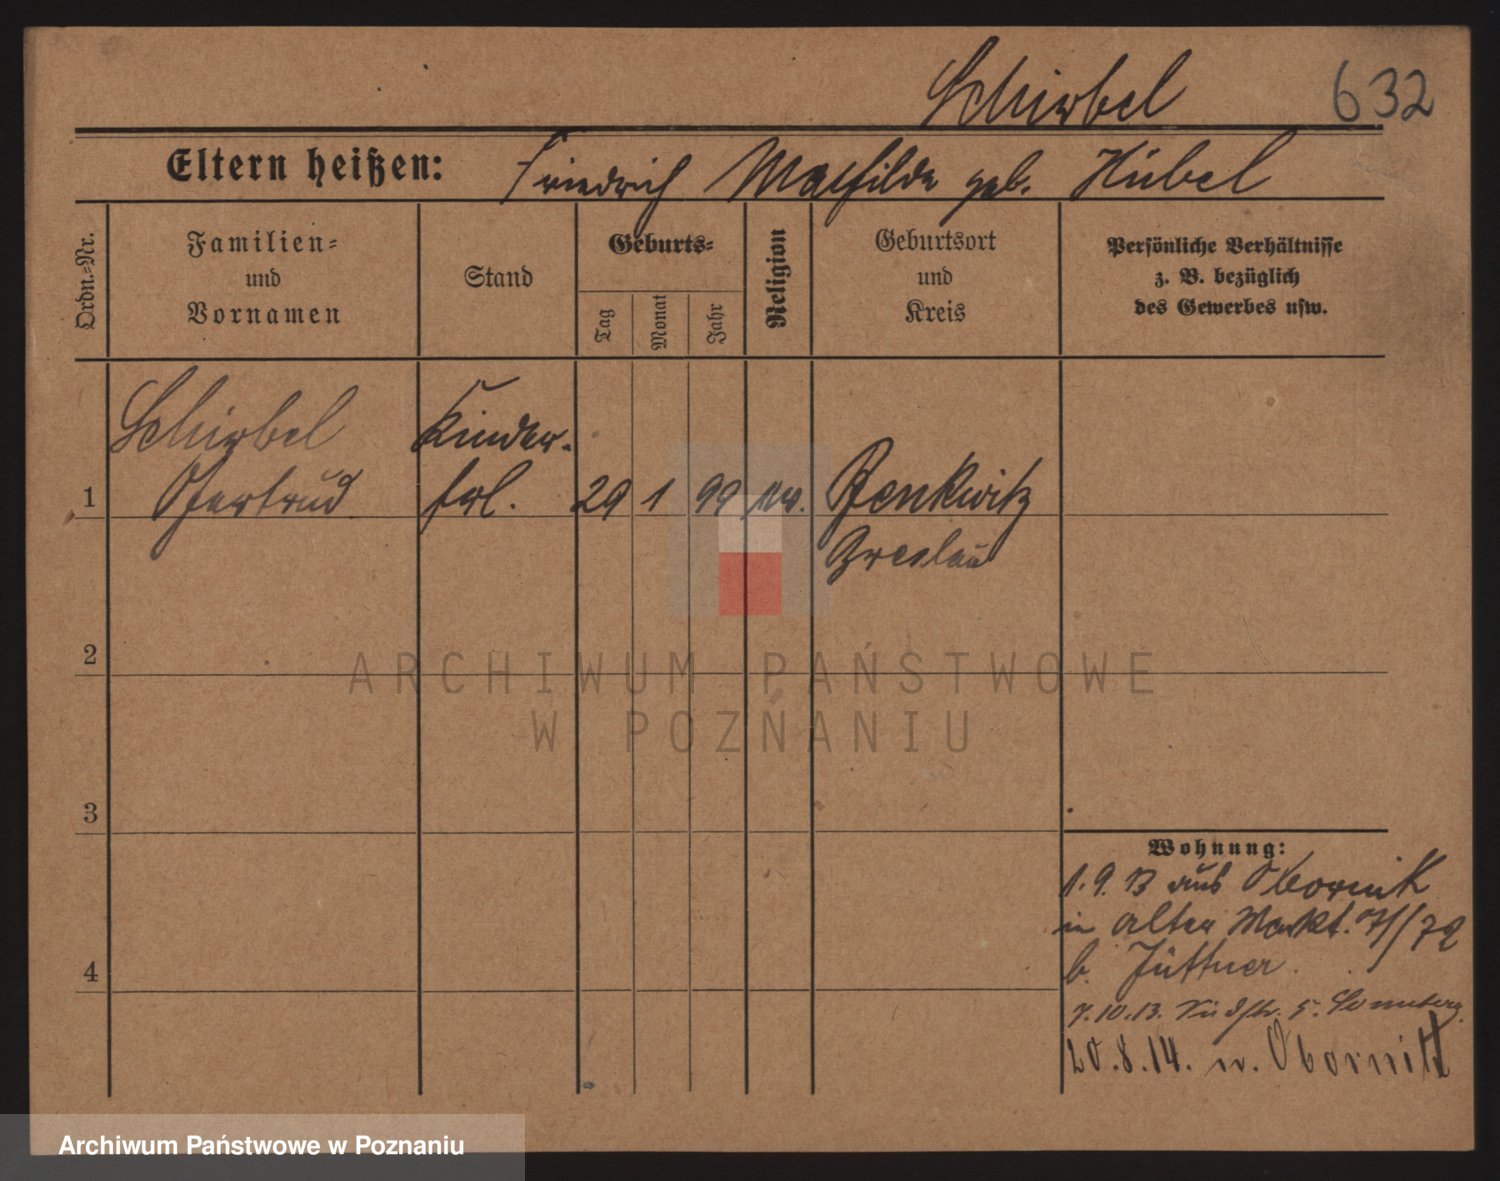 Schirbel 632
Eltern heißen: Friedrich Mathilde geb. Hübel
Ordn.-Nr.
Familien-
und
Vornamen
Stand
Geburts-
Tag
Monat
Jahr
Religion
Geburtsort
und
Kreis
Persönliche Verhältnisse
z. B. bezüglich
des Gewerbes usw.
Schirbel Kinder-
1 Gertrud frl. 29 1 99 Benkwitz
Breslau
2
3
4
Wohnung:
1.9.13 aus Obornik
in alter Markt. 71/72
b. Jüttner.
7.10.13. Südstr. 5.
20.8.14. n. Obornik
ARCHIWUM PAŃSTWOWE
W POZNANIU
Archiwum Państwowe w Poznaniu